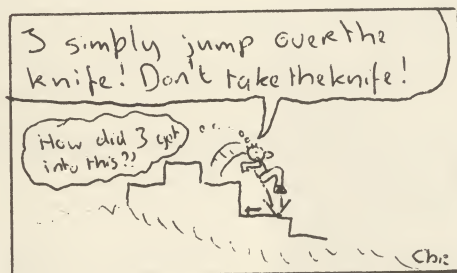 I simply jump over the
knife! Don't take the knife!
How did I get
into this?!